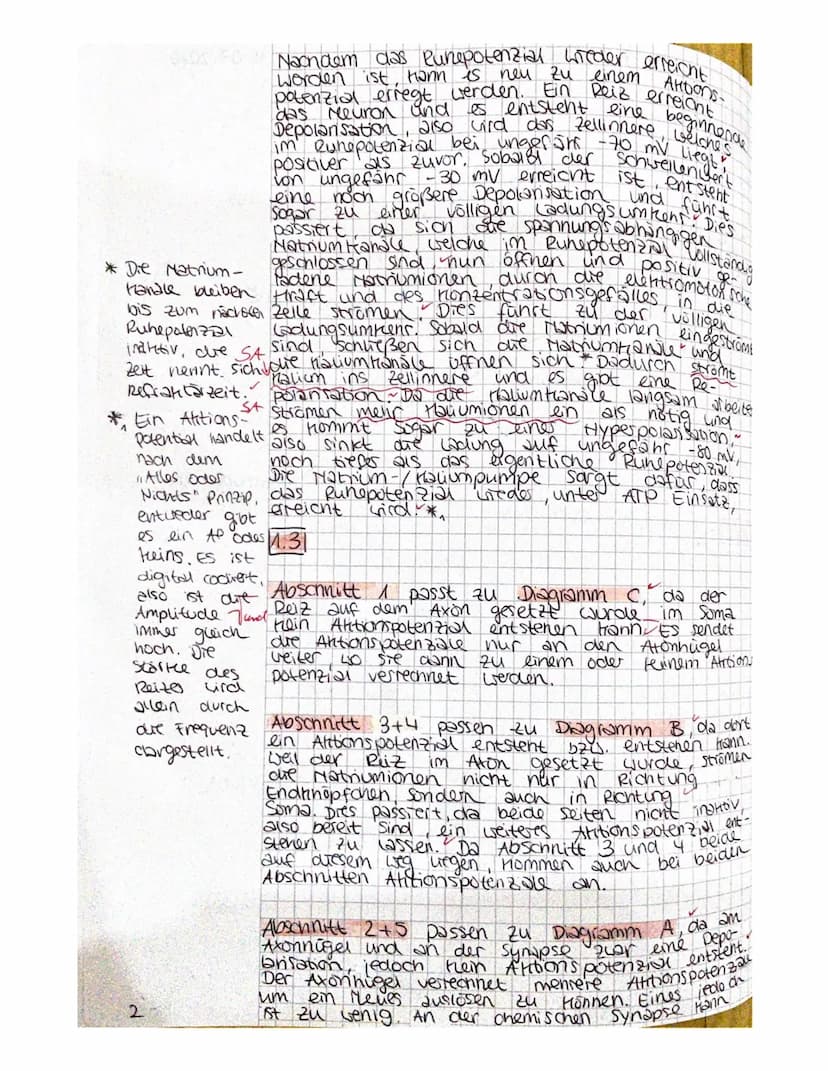 Nachdem das Ruhepotenzial wieder erreicht
worden ist, kann es neu zu einem Aktions-
potenzial erregt werden. Ein Reiz erreicht
das Neuron und es entsteht eine beginnende
Depolarisation, also wird das Zellinnere, welches
im Ruhepotenzial bei ungefähr -70 mV liegt,
positiver als zuvor. Sobald der Schwellenwert
von ungefähr -30 mV erreicht ist, entsteht
eine noch größere Depolarisation und führt
sogar zu einer völligen Ladungsumkehr. Dies
passiert, da sich die spannungsabhängigen
Natriumkanäle, welche im Ruhepotenzial vollständig
geschlossen sind, nun öffnen und positiv ge-
ladene Natriumionen, durch die elektromotorische
Kraft und des Konzentrationsgefälles in die
Zelle strömen. Dies führt zu der völligen
Ladungsumkehr. Sobald die Natriumionen eingeströmt
sind, schließen sich die Natriumkanäle und
die Kaliumkanäle öffnen sich.* Dadurch strömt
Kalium ins Zellinnere und es gibt eine Re-
polarisation. Da die Kaliumkanäle langsam arbeiten
strömen mehr Kaliumionen ein als nötig und
es kommt sogar zu einer Hyperpolarisation,
also sinkt die Ladung auf ungefähr -80 mV,
noch tiefer als das eigentliche Ruhepotenzial.
Die Natrium-/Kaliumpumpe sorgt dafür, dass
das Ruhepotenzial wieder, unter ATP Einsatz,
erreicht wird. *1
* Die Natrium-
kanäle bleiben
bis zum nächsten
Ruhepotenzial
inaktiv, die SA
Zeit nennt sich
Refraktärzeit.
SA
*1 Ein Aktions-
potential handelt
nach dem
"Alles oder
Nichts" Prinzip,
entweder gibt
es ein AP oder
keins. Es ist
digital codiert,
also ist die
Amplitude und
immer gleich
hoch. Die
Stärke des
Reizes wird
allein durch
die Frequenz
dargestellt.
1.3
Abschnitt 1 passt zu Diagramm C, da der
Reiz auf dem Axon gesetzt wurde im Soma
kein Aktionspotenzial entstehen kann. Es sendet
die Aktionspotenziale nur an den Axonhügel
weiter, wo sie dann zu einem oder keinem Aktions
potenzial verrechnet werden.
Abschnitt 3+4 passen zu Diagramm B, da dort
ein Aktionspotenzial entsteht bzw. entstehen kann.
Weil der Reiz im Axon gesetzt wurde, strömen
die Natriumionen nicht nur in Richtung
Endknöpfchen, sondern auch in Richtung
Soma. Dies passiert, da beide Seiten nicht inaktiv,
also bereit sind, ein weiteres Aktionspotenzial ent-
stehen zu lassen. Da Abschnitt 3 und 4 beide
auf diesem Weg liegen, kommen auch bei beiden
Abschnitten Aktionspotenziale an.
Abschnitt 2+5 passen zu Diagramm A, da am
Axonhügel und an der Synapse zwar eine Depo-
larisation, jedoch kein Aktionspotenzial entsteht.
Der Axonhügel verrechnet mehrere Aktionspotenziale
um ein Neues auslösen zu können. Eines jedoch
ist zu wenig. An der chemischen Synapse kann
2